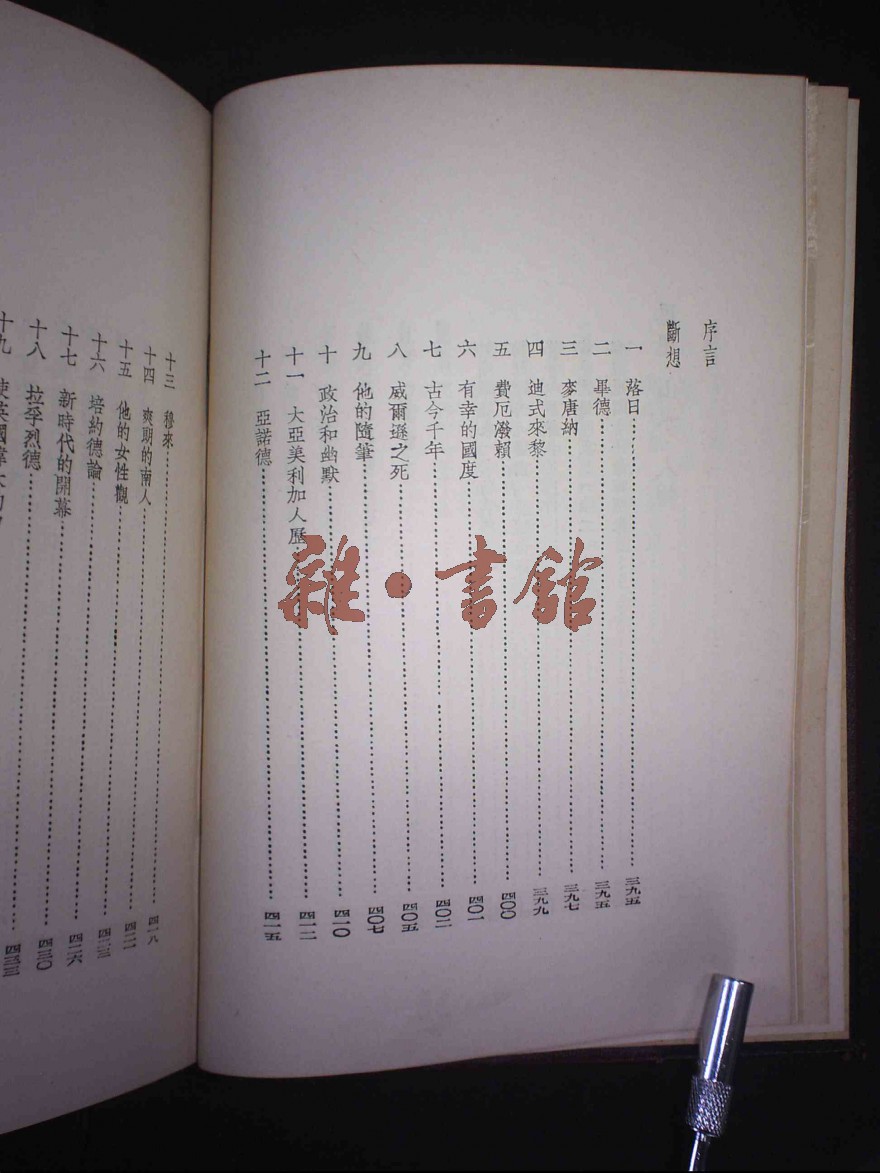 序言
斷想
一 落日……三九五
二 畢德……三九五
三 麥唐納……三九七
四 迪式來黎……三九九
五 費厄潑賴……四〇〇
六 有幸的國度……四〇一
七 古今千年……四〇二
八 威爾遜之死……四〇五
九 他的隨筆……四〇七
十 政治和幽默……四一〇
十一 大亞美利加人歷……四一二
十二 亞諾德……四一五
十三 穆來……四一八
十四 爽期的南人……四二一
十五 他的女性觀……四二二
十六 培約德論……四二三
十七 新時代的開幕……四二六
十八 拉孚烈德……四三〇
十九 使英國偉大的……四三三
雜·書館